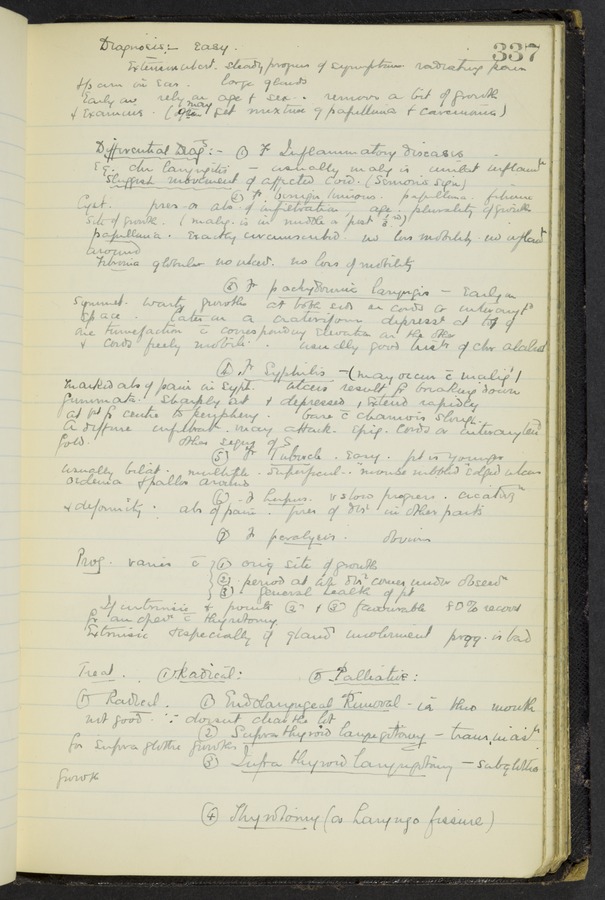 337
Diagnosis:- Easy.
steady progress of symptoms radiating pain
in Ear. large glands
Early on, rely on age & sex. remove a bit of growth
& Examine. (may get mixture of papilloma & carcinoma)
Differential Diag:- (1) Fr Inflammatory diseases
Eg. chr laryngitis - usually malig is
Sluggish movement of affected cord. (Semons sign)
(2) Fr benign tumours. papilloma. fibroma
Cyst. pres or abs of infiltration age, plurality of growth
site of growth. (malig. is in middle or post 1/3 rd)
papilloma. Exactly circumscribed. no loss mobility. no
around
Fibroma globular no ulcer. no loss of mobility
(3) Fr pachydermic laryngitis - Early on
symmet. warty growths at both ends on cords or
space. later on a crateriform depress at of
one tumefaction c corresponding Elevation on the other
& cords freely mobile. usually good hist of chr alcohol
(4) Fr Syphilis - (may occur c malig!)
marked abs of pain in Syph. ulcers result fr breaking down
Gummata. sharply cut & depressed, Extend rapidly
fr centre to periphery. base c chamois slough.
a diffuse may attack Epig. Cords or
fold. Other signs of S
(5) Fr Tubercle. Easy. pt is younger
usually bilat. multiple. superficial. "mouse nibbled" edged ulcers
oedema & pallor around
(6) Fr Lupus. v slow progress. cicatrizn
& deformity. abs of pain. pres of dis in other parts
(7) Fr paralysis. obvious
Prog. varies c (1) orig site of growth
(2) period at wh dis comes under observn
(3) general health of pt
If intrinsic & points (2) & (3) favourable 80% recover
fr an opern c thyrotomy
Extrinsic & especially if gland involvement prog. is bad
Treat. (1) Radical: (2) Palliative:
(1) Radical. (1) Endolaryngeal Removal - via the mouth
not good. ∵ doesnt clear the lot
(2) Supra thyroid laryngotomy -
for supra glottic growths
(3) Infra thyroid laryngotomy - subglottic
growth
(4) Thyrotomy (or Laryngo fissure)